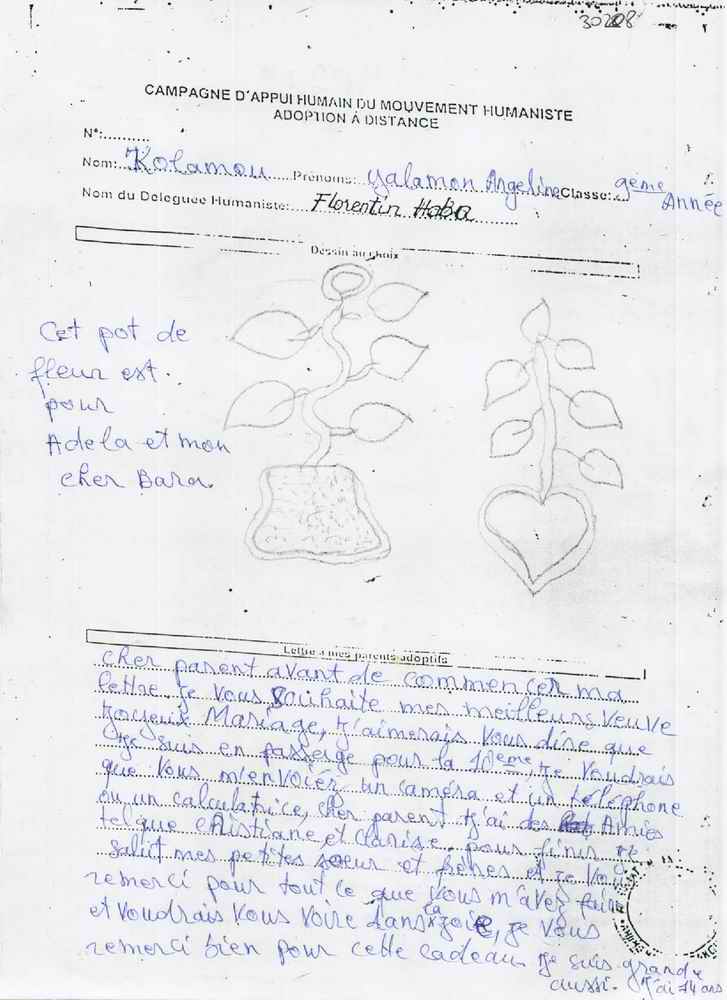 30208
CAMPAGNE D'APPUI HUMAIN DU MOUVEMENT HUMANISTE
ADOPTION À DISTANCE
N°:..........
Nom: Kolamou Prénoms: Yalamon Angeline Classe: 9ème Année
Nom du Deleguée Humaniste: Florentin Haba
Dessin au choix
Cet pot de
fleur est
pour
Adela et mon
cher Bara.
Lettre a mes parents adoptifs
cher parent avant de commencer ma
lettre Je vous Souhaite mes meilleurs veuve
Joyeux Mariage, J'aimerais vous dire que
Je suis en passerge pour la 10ème, Je voudrais
que vous m'envoiér un caméra et un téléphone
ou un calculatrice, cher parent J'ai des Amies
tel que Christiane et Clarise. pour finir je
salut mes petites soeur et frères et je vous
remerci pour tout ce que vous m'avez faire
et voudrais vous voire dans la joie, je vous
remerci bien pour cette cadeau. Je suis grande
aussi. J'ai 14 ans